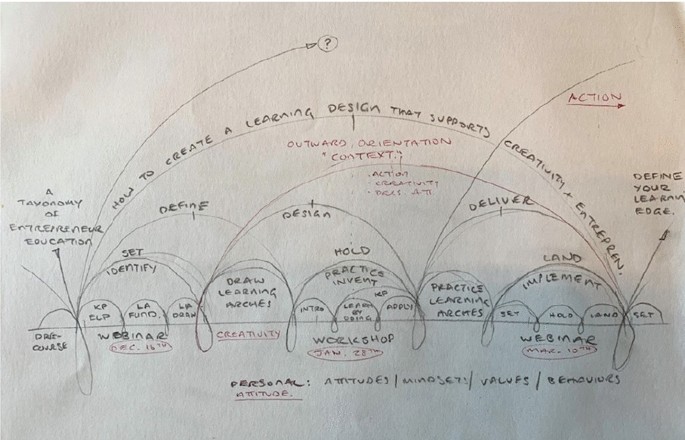 ?
ACTION
HOW TO CREATE A LEARNING DESIGN THAT SUPPORTS CREATIVITY + ENTREPREN.
OUTWARD ORIENTATION
"CONTEXT"
. ACTION
. CREATIVITY
A
TAXONOMY
OF
ENTREPRENEUR
EDUCATION
DEFINE
YOUR
LEARNING
EDGE.
DEFINE
DESIGN
DELIVER
SET
IDENTIFY
HOLD
PRACTICE
INVENT
LAND
IMPLEMENT
DRAW
LEARNING
ARCHES
PRACTICE
LEARNING
ARCHES
KP
ELP
LA
FUND.
LA
DRAW
INTRO
LEARN
BY
DOING
APPLY
SET
HOLD
LAND
SET
PRE-
COURSE
WEBINAR
DEC. 16TH
CREATIVITY
WORKSHOP
JAN. 28TH
WEBINAR
MAR. 10TH
PERSONAL: ATTITUDES / MINDSETS / VALUES / BEHAVIORS
ATTITUDE.